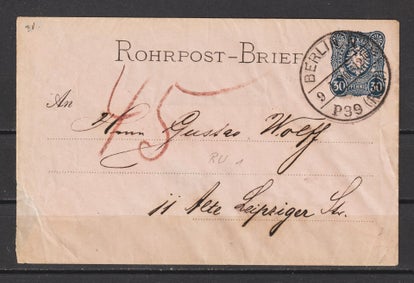 ROHRPOST-BRIEF
BERLIN S
P39
30 PFENNIG 30
45
An
Herrn Gustav Wolff
RU 1
11 Alte Leipziger Str.